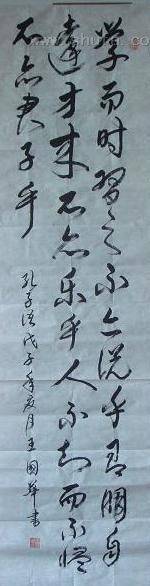 学而时習之不亦说乎有朋自
遠方来不亦乐乎人不知而不愠
不亦君子乎
孔子语戊子年夏月王國華書